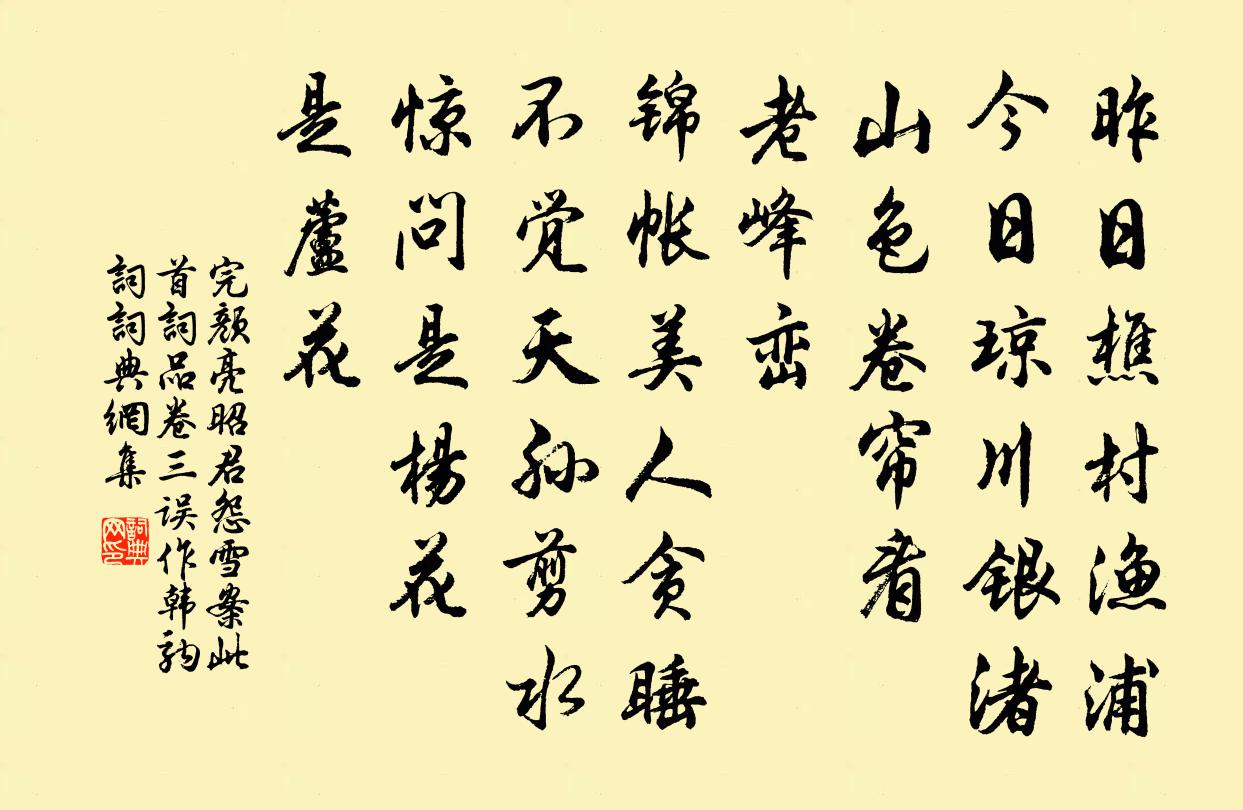 昨日樵村渔浦
今日琼川银渚
山色卷帘看
老峰峦
锦帐美人贪睡
不觉天孙剪水
惊问是杨花
是蘆花
完颜亮昭君怨雪案此
首詞品卷三误作韩駒
詞詞典網集
詞典网印